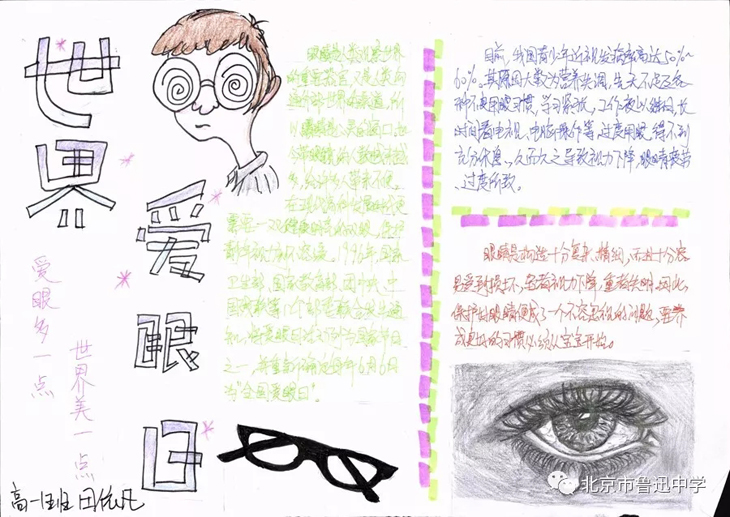 世界
爱眼日
爱眼多一点
世界美一点
高一班
眼睛是人类观察世界
的重要器官,又是人类
世界的渠道,所
以眼睛是心灵的窗口。
眼睛病人数越来越
多,给许多人带来不便。
在现代高科技发展的
需要一双健康明亮的眼睛,保护
青少年视力刻不容缓。1996年,国家
卫生部、国家教育部、团中央、中
国残联等12个部委联合发出通
知,将爱眼日活动列为国家节日
之一,并重新确定每年6月6日
为"全国爱眼日"。
目前,我国青少年近视发病率高达50%~
60%。其原因大数为营养失调,先天不足及各
种不良用眼习惯,学习紧张,工作夜以继日,长
时间看电视、电脑操作等,过度用眼,得不到
充分休息。久而久之导致视力下降,眼睛疲劳
过度所致。
眼睛是构造十分复杂、精细,而且十分容
易受到损坏,轻者视力下降,重者失明。因此,
保护好眼睛便成了一个不容忽视的问题,要养
成良好的习惯必须从宝宝开始。
北京市鲁迅中学